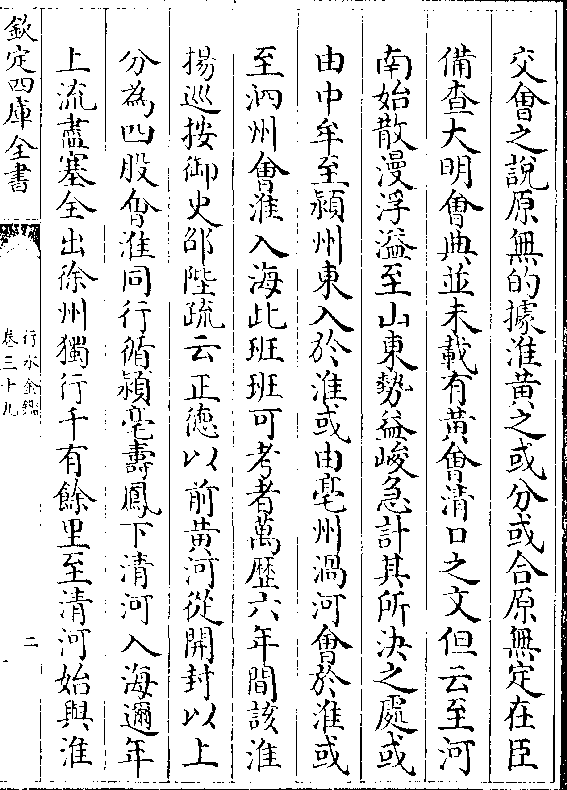 交會之說原無的據淮黃之或分或合原無定在臣
備查大明會典並未載有黃會清口之文但云至河
南始散漫浮溢至山東勢益峻急計其所決之處或
由中牟至潁州東入於淮或由亳州渦河會於淮或
至泗州會淮入海此班班可考者萬歷六年間該淮
揚巡按御史邵陛疏云正德以前黃河從開封以上
分為四股會淮同行循潁亳壽鳳下清河入海邇年
上流盡塞全出徐州獨行千有餘里至清河始與淮
欽定四庫全書
行水金鑑
卷三十九
二